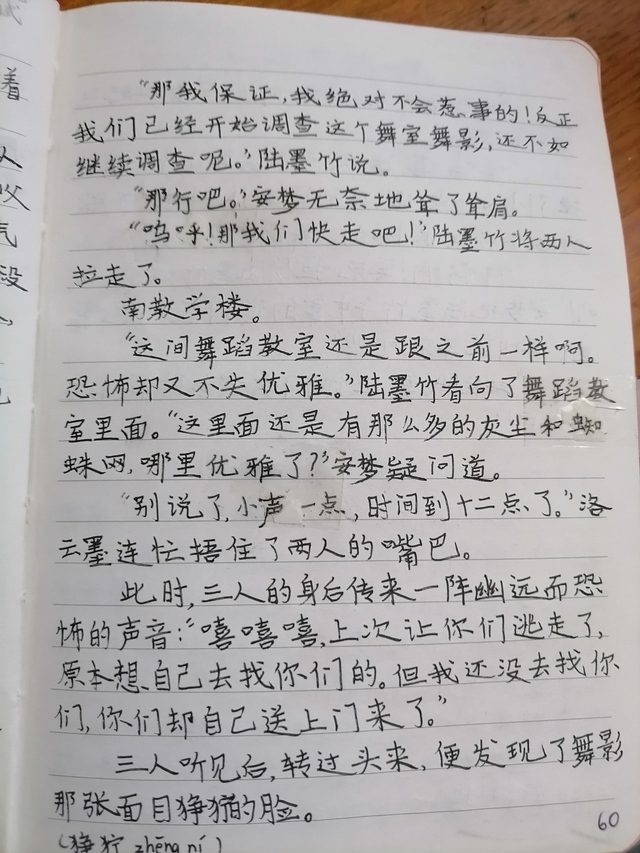 着
从
收
气
段
“那我保证,我绝对不会惹事的!反正
我们已经开始调查这个舞室舞影,还不如
继续调查呢。”陆墨竹说。
“那行吧。”安梦无奈地耸了耸肩。
“呜呼!那我们快走吧!”陆墨竹将两人
拉走了。
南教学楼。
“这间舞蹈教室还是跟之前一样啊。
恐怖却又不失优雅。”陆墨竹看向了舞蹈教
室里面。“这里面还是有那么多的灰尘和蜘
蛛网,哪里优雅了?”安梦疑问道。
“别说了,小声一点,时间到十二点了。”洛
云墨连忙捂住了两人的嘴巴。
此时,三人的身后传来一阵幽远而恐
怖的声音:“嘻嘻嘻,上次让你们逃走了,
原本想自己去找你们的。但我还没去找你
们,你们却自己送上门来了。”
三人听见后,转过头来,便发现了舞影
那张面目狰狞的脸。
(狰狞 zhēng ní)
60